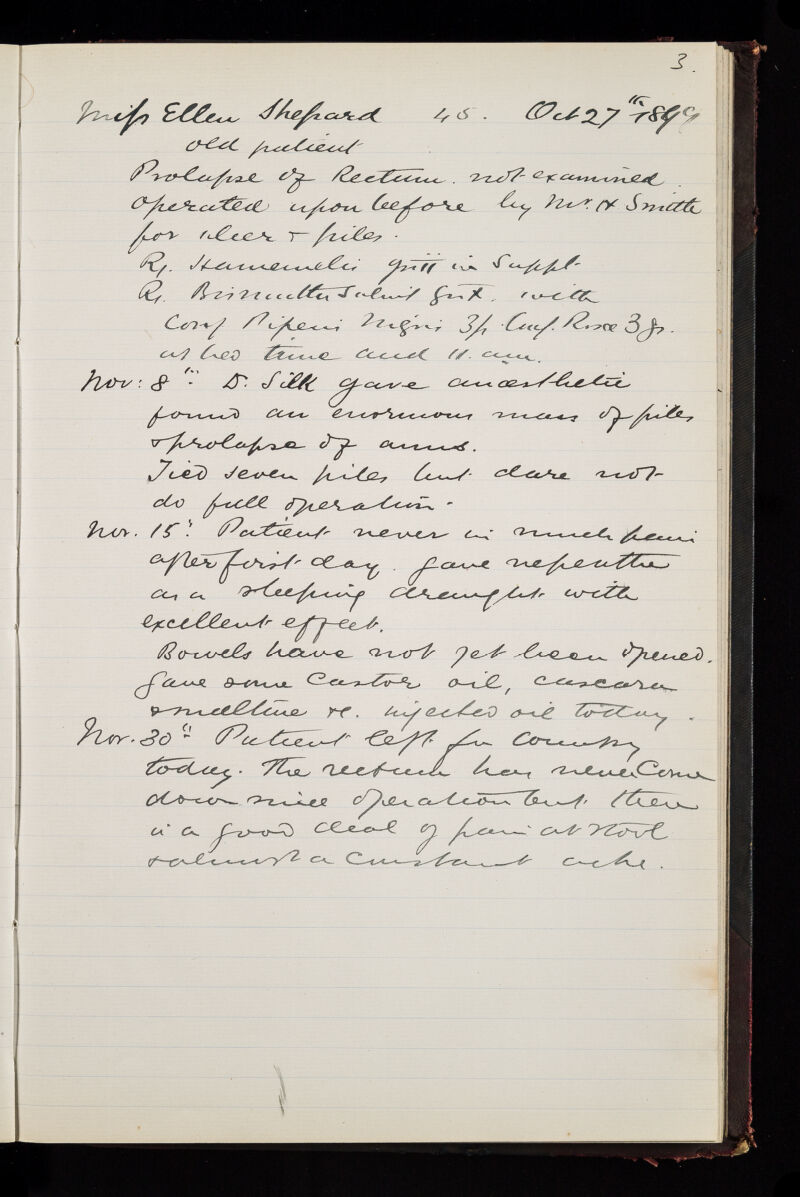 3.
Miss Ellen Shepard 45. Oct 27th 1899
old patient
Prolapse of Rectum. not examined.
Operated upon before by Mr. H Smith
for ulcer + piles.
Rx. Hamamelis gr iii in Suppl.
Rx. Bismuth Subnit grx. with
Conf Piperis Nigris ʒp. Conf. Rosæ ʒjs.
at bed time and 11. am.
Nov: 8th: D. Silk gave anæsthetic
found an enormous mass of piles
& prolapse of anus.
Tied seven piles but dare not
do full operation.
Nov. 15th: Patient never in much pain
after first day. Gave nepenthe
as a sleeping draught with
excellent effect.
Bowels have not yet been opened.
Gave some Castor oil, cascara
&c. injected oil today.
Nov. 30th Patient left for Country
today. The rectum has never Come
down since operation but there
is a good deal of pain at stool
& almost a constant ache.